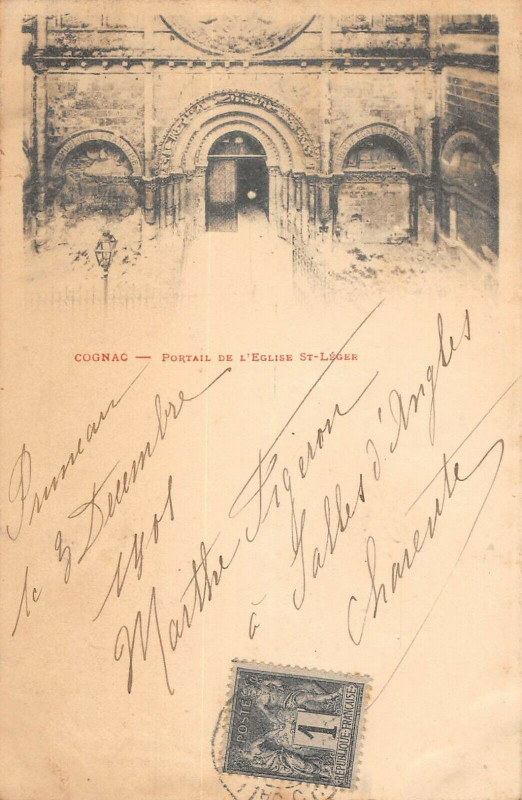 COGNAC — PORTAIL DE L'EGLISE ST-LÉGER
Pruneau
le 3 Décembre
1901
Marthe Figeron
à Salles d'Angles
Charente
POSTES
1
REPUBLIQUE FRANÇAISE